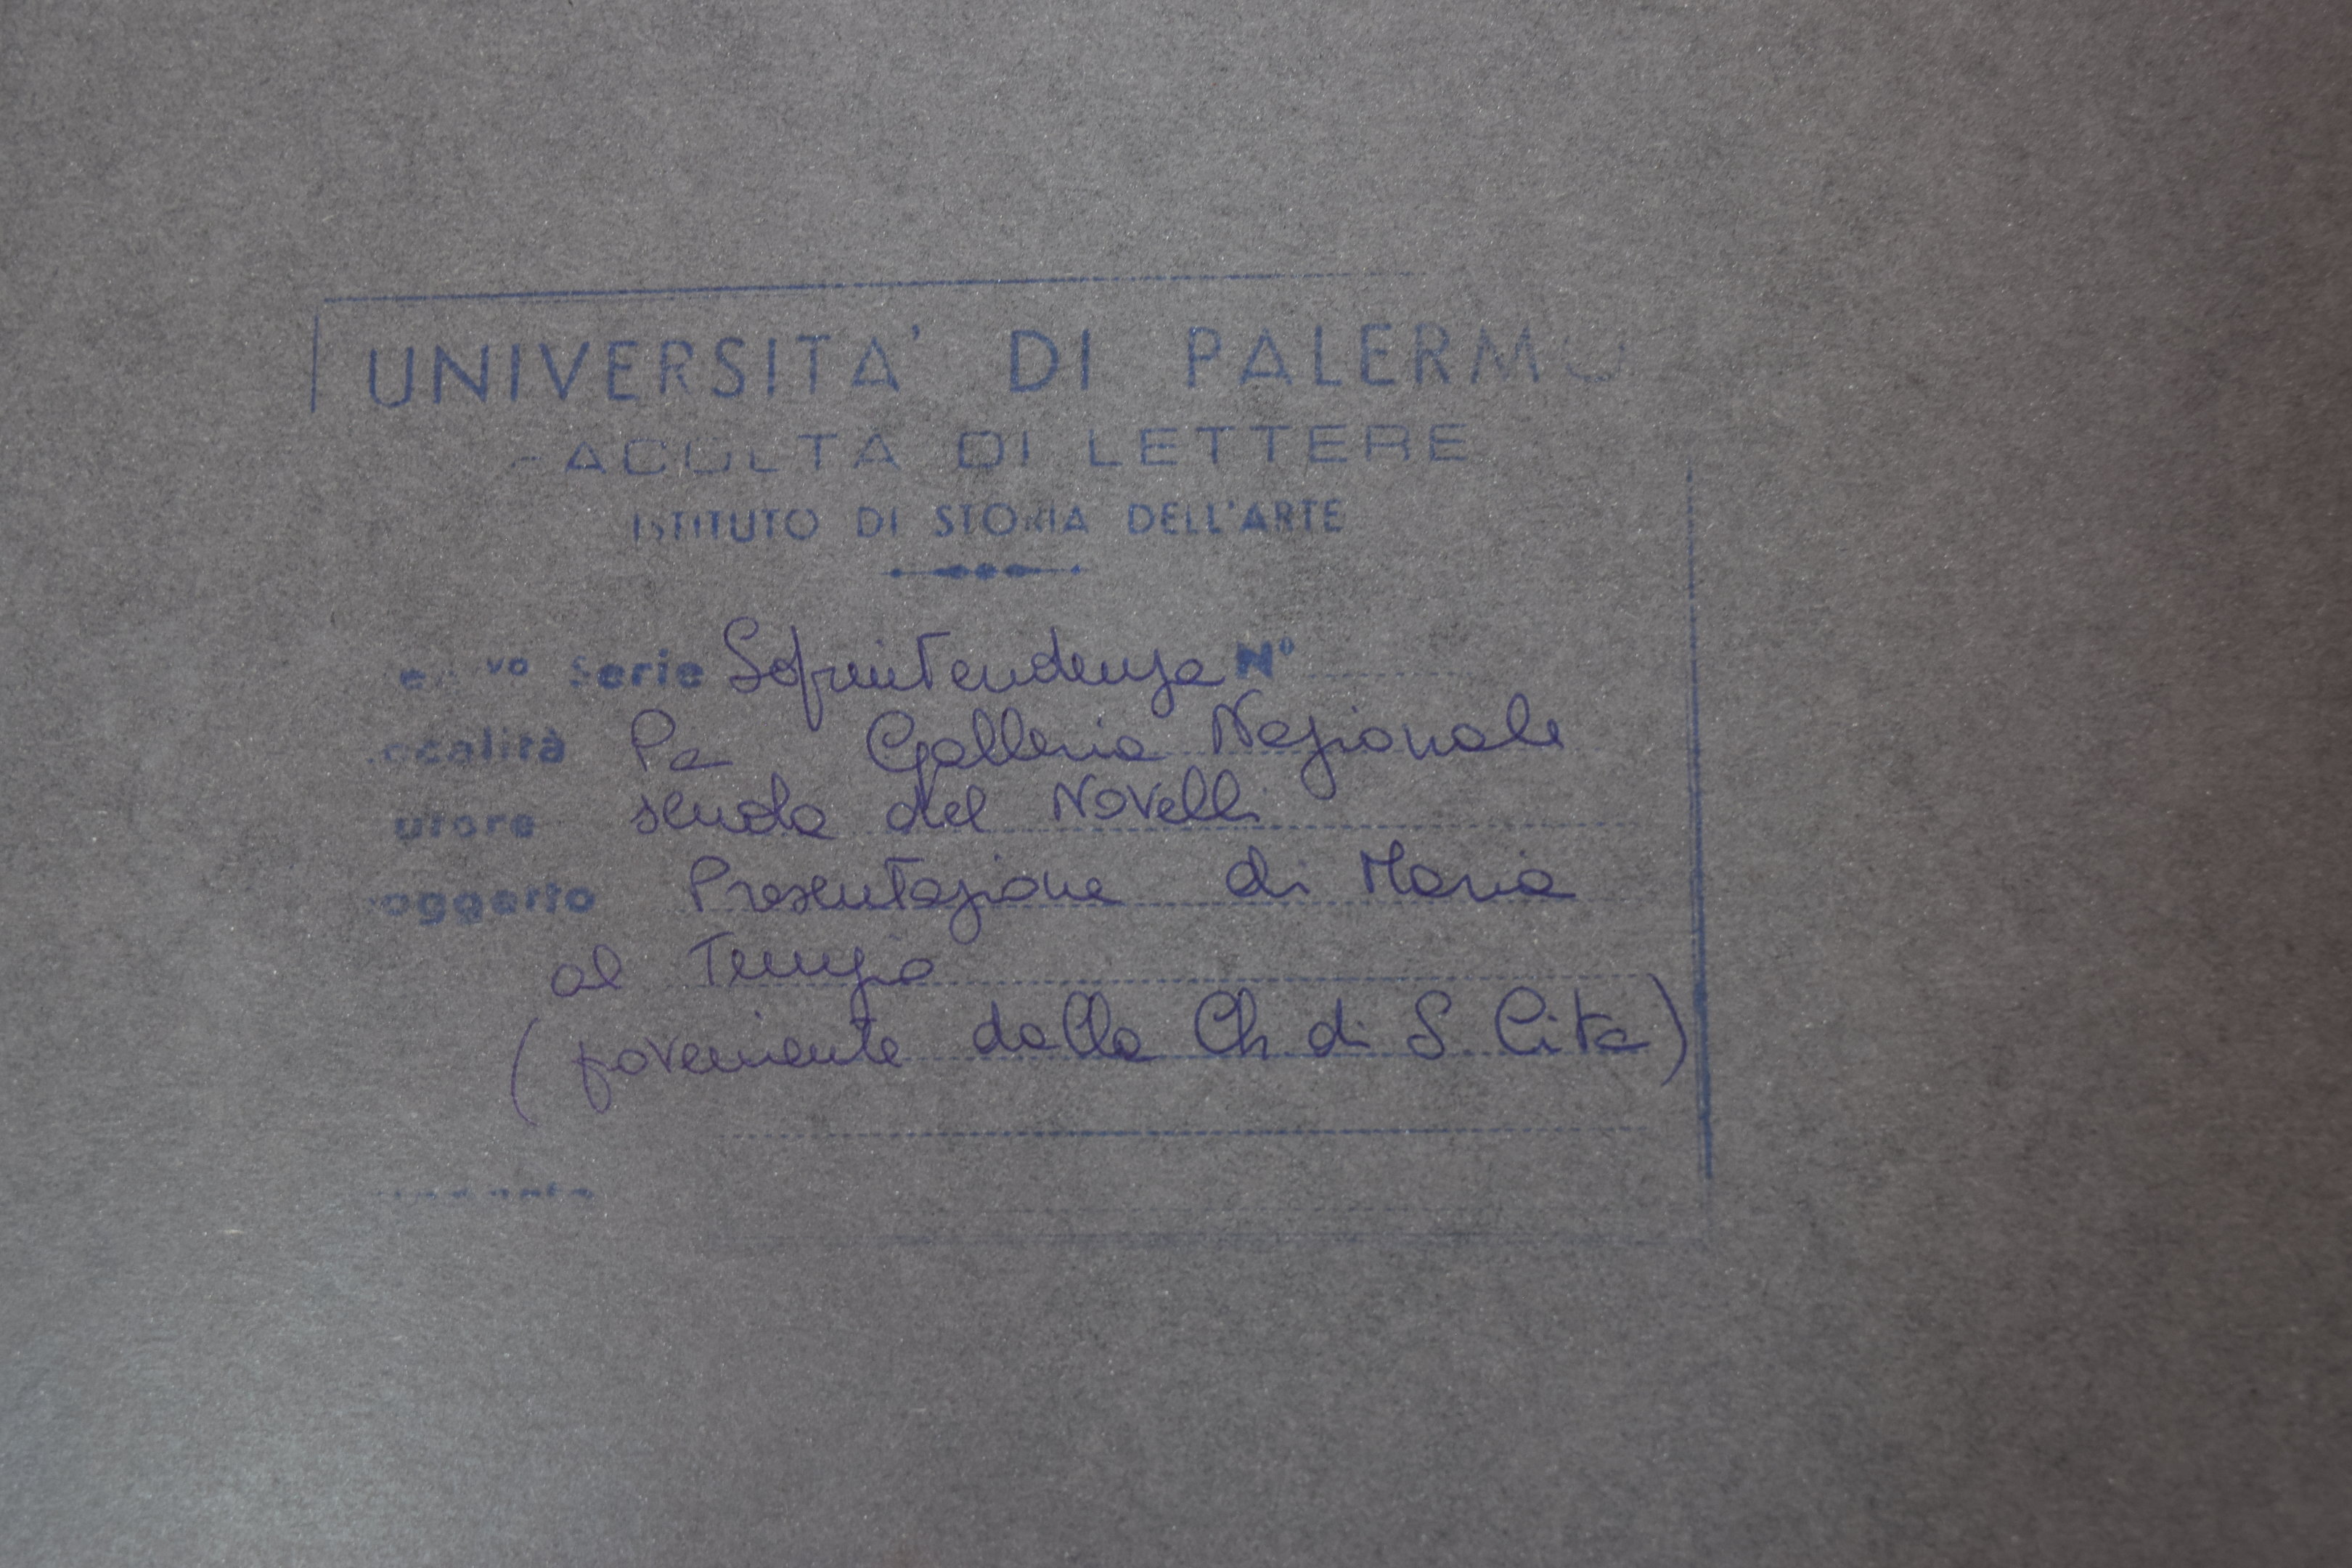 UNIVERSITA' DI PALERMO
FACOLTA DI LETTERE
ISTITUTO DI STORIA DELL'ARTE
vo Serie Soprintendenza N°
Località Pa Galleria Nazionale
Autore scuola del Novelli
Soggetto Presentazione di Maria
al Tempio
(poveniente dalla Ch di S. Cita)